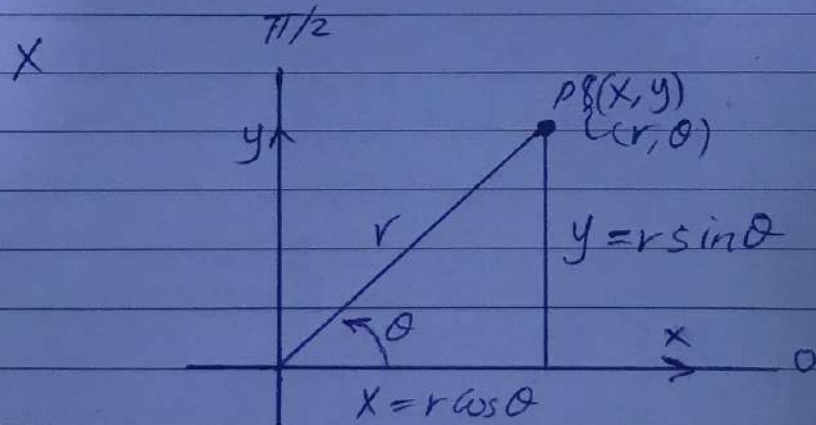 π/2
X
P{(x, y)
(r, θ)
y
r
y = r sin θ
θ
x
0
x = r cos θ